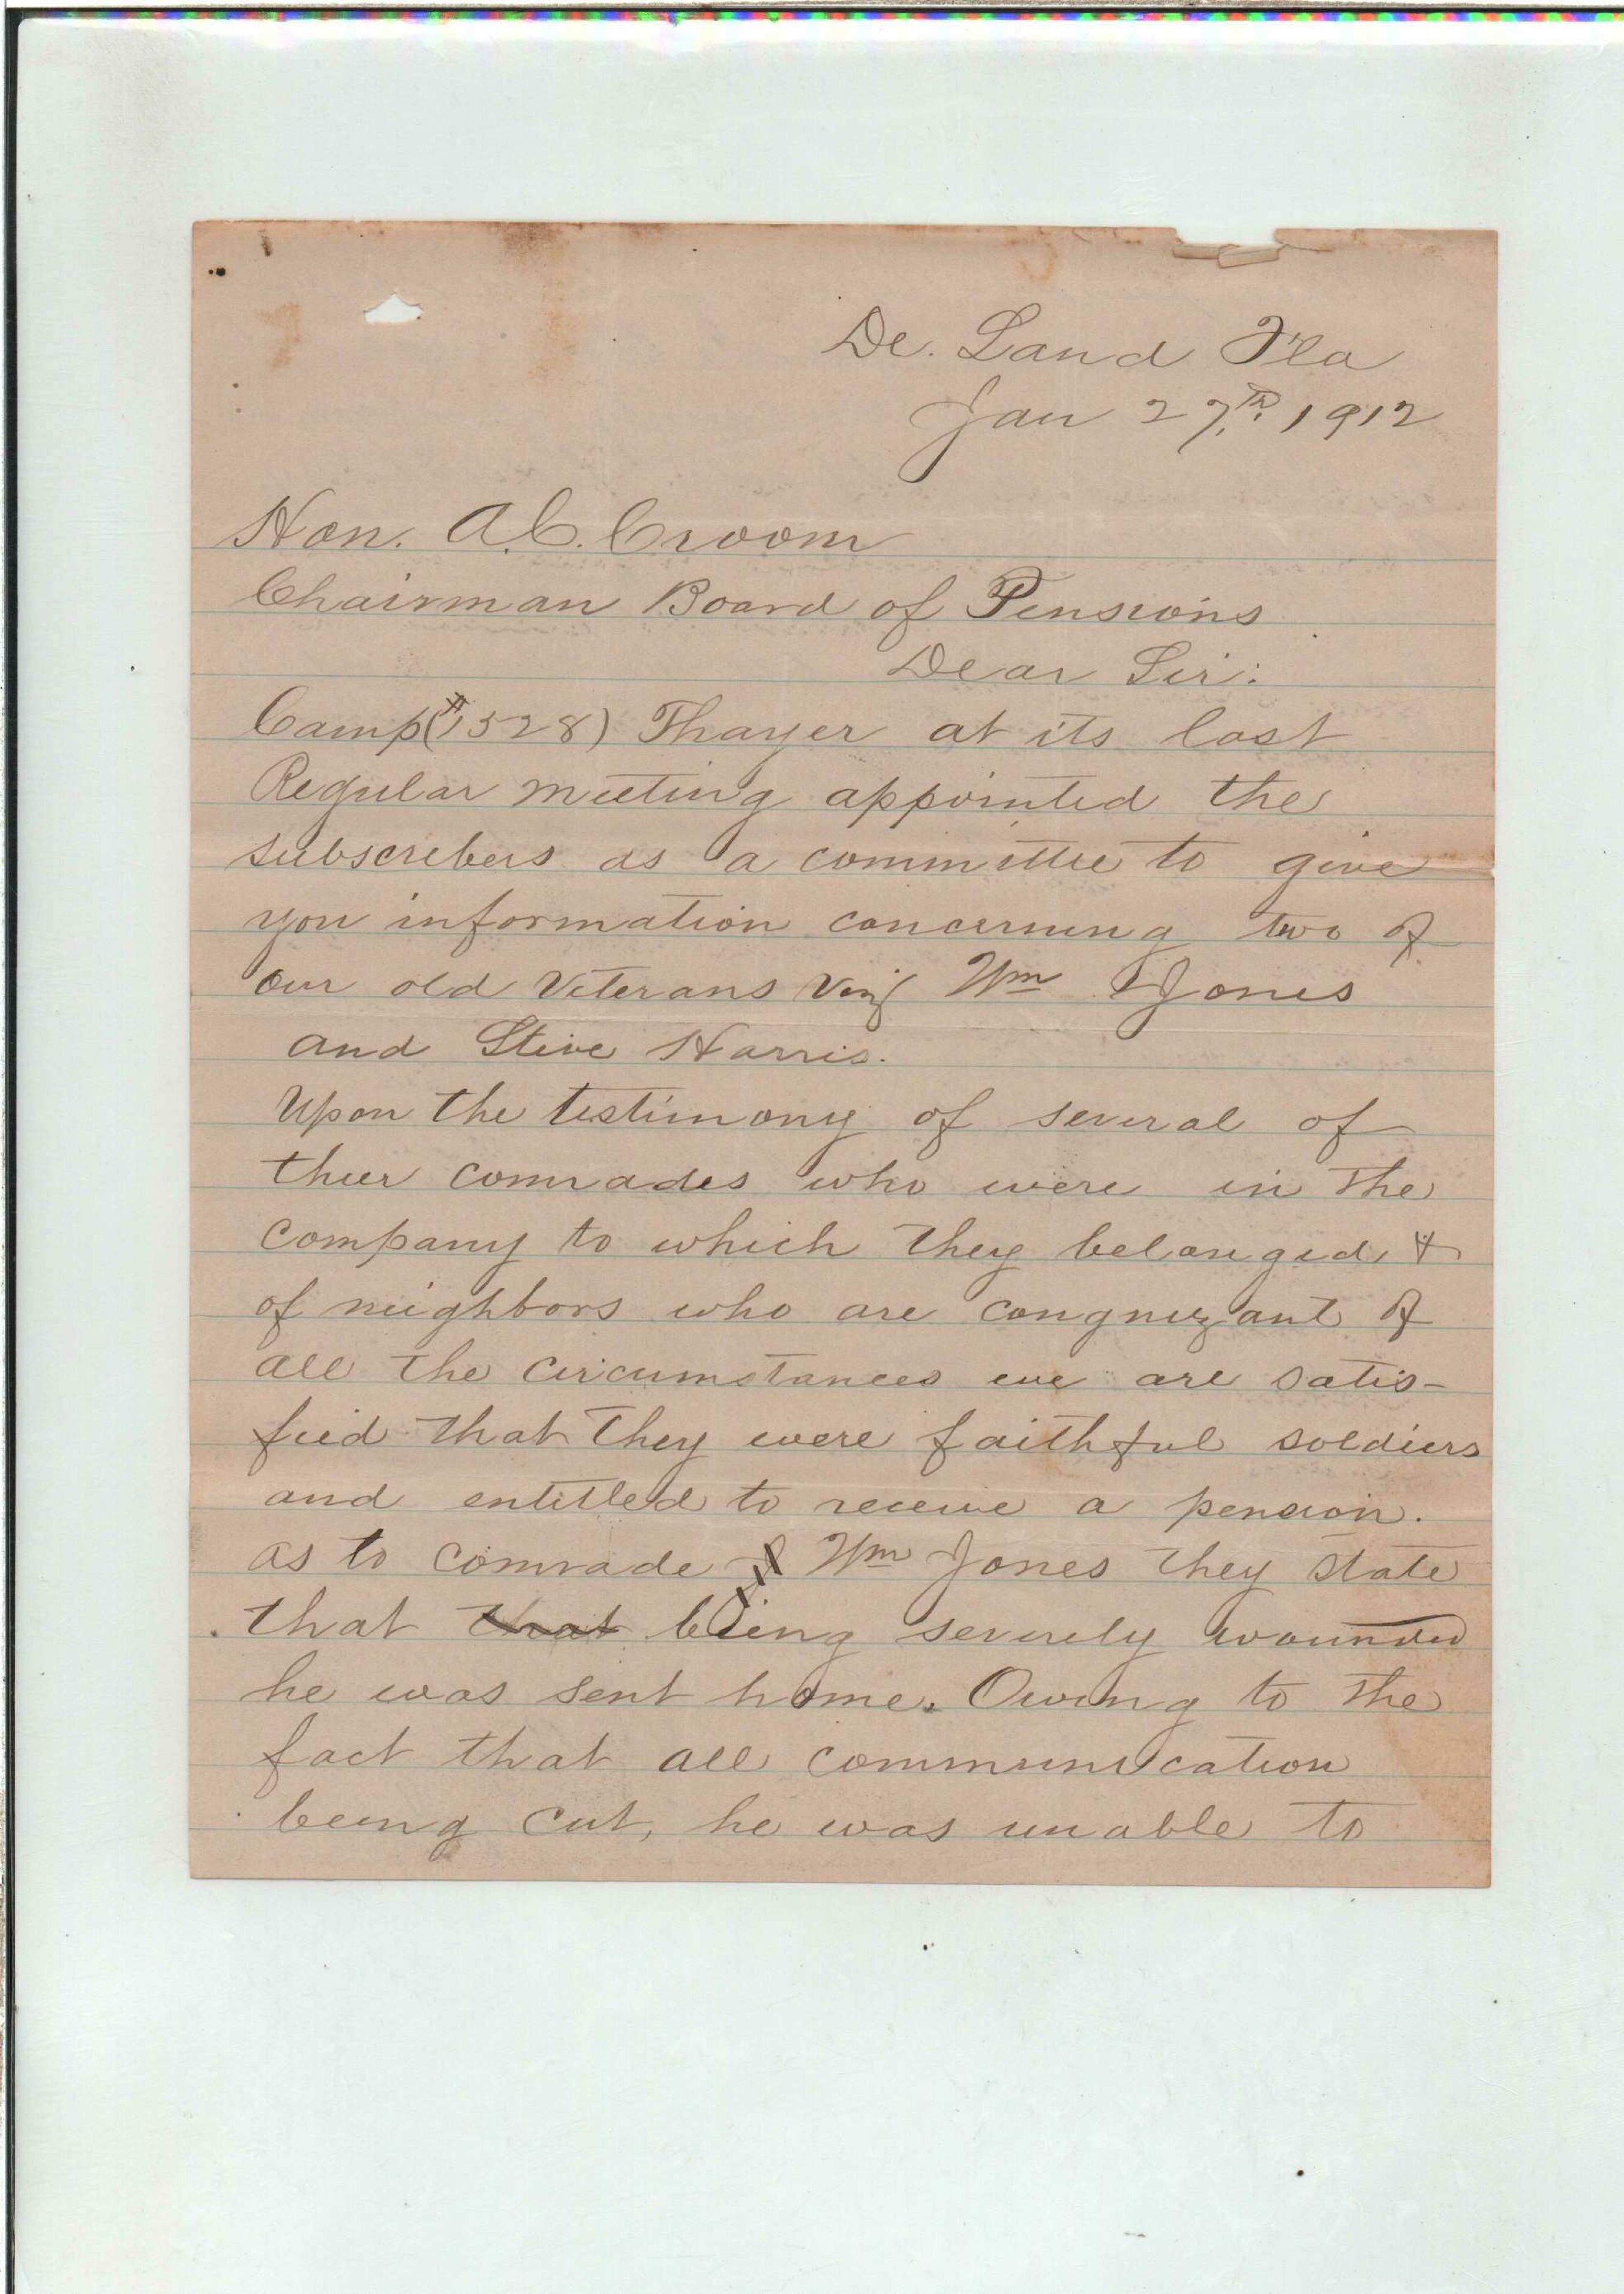 De. Land Fla
Jan 27th. 1912
Hon. A.C. Croom
Chairman Board of Pensions
Dear Sir:
Camp (#1528) Thayer at its last
Regular meeting appointed the
subscribers as a committee to give
you information concerning two of
our old Veterans Viz Wm Jones
and Steve Harris.
Upon the testimony of several of
their comrades who were in the
company to which they belonged &
of neighbors who are congnizant of
all the circumstances we are satis-
fied that they were faithful soldiers
and entitled to receive a pension.
as to comrade Wm Jones they state
that that being severely wounded
he was sent home. Owing to the
fact that all communication
being cut, he was unable to